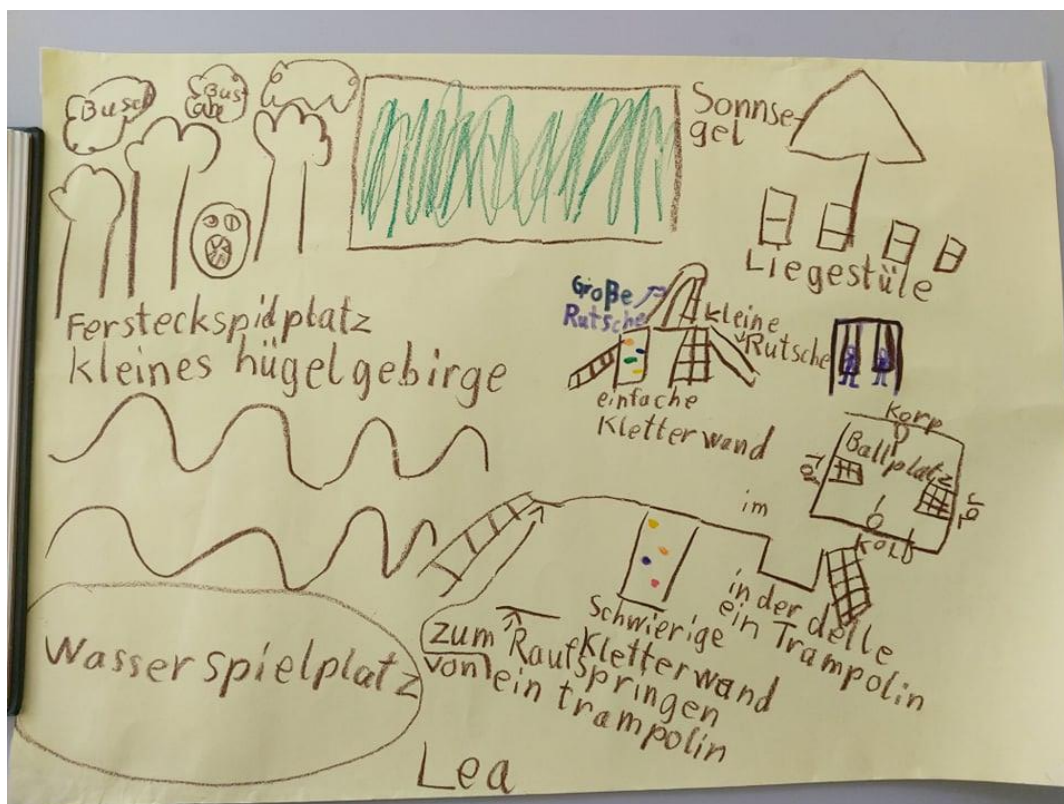 Busch
Busch
Sonnse-
gel
Liegestüle
Fersteckspidplatz
kleines hügelgebirge
Große
Rutsche
kleine
Rutsche
einfache
Kletterwand
Korp
Ballplatz
Tor
Tor
Kolb
im
in der delle
ein Trampolin
Schwierige
Kletterwand
zum Raufspringen
von ein trampolin
Wasserspielplatz
Lea